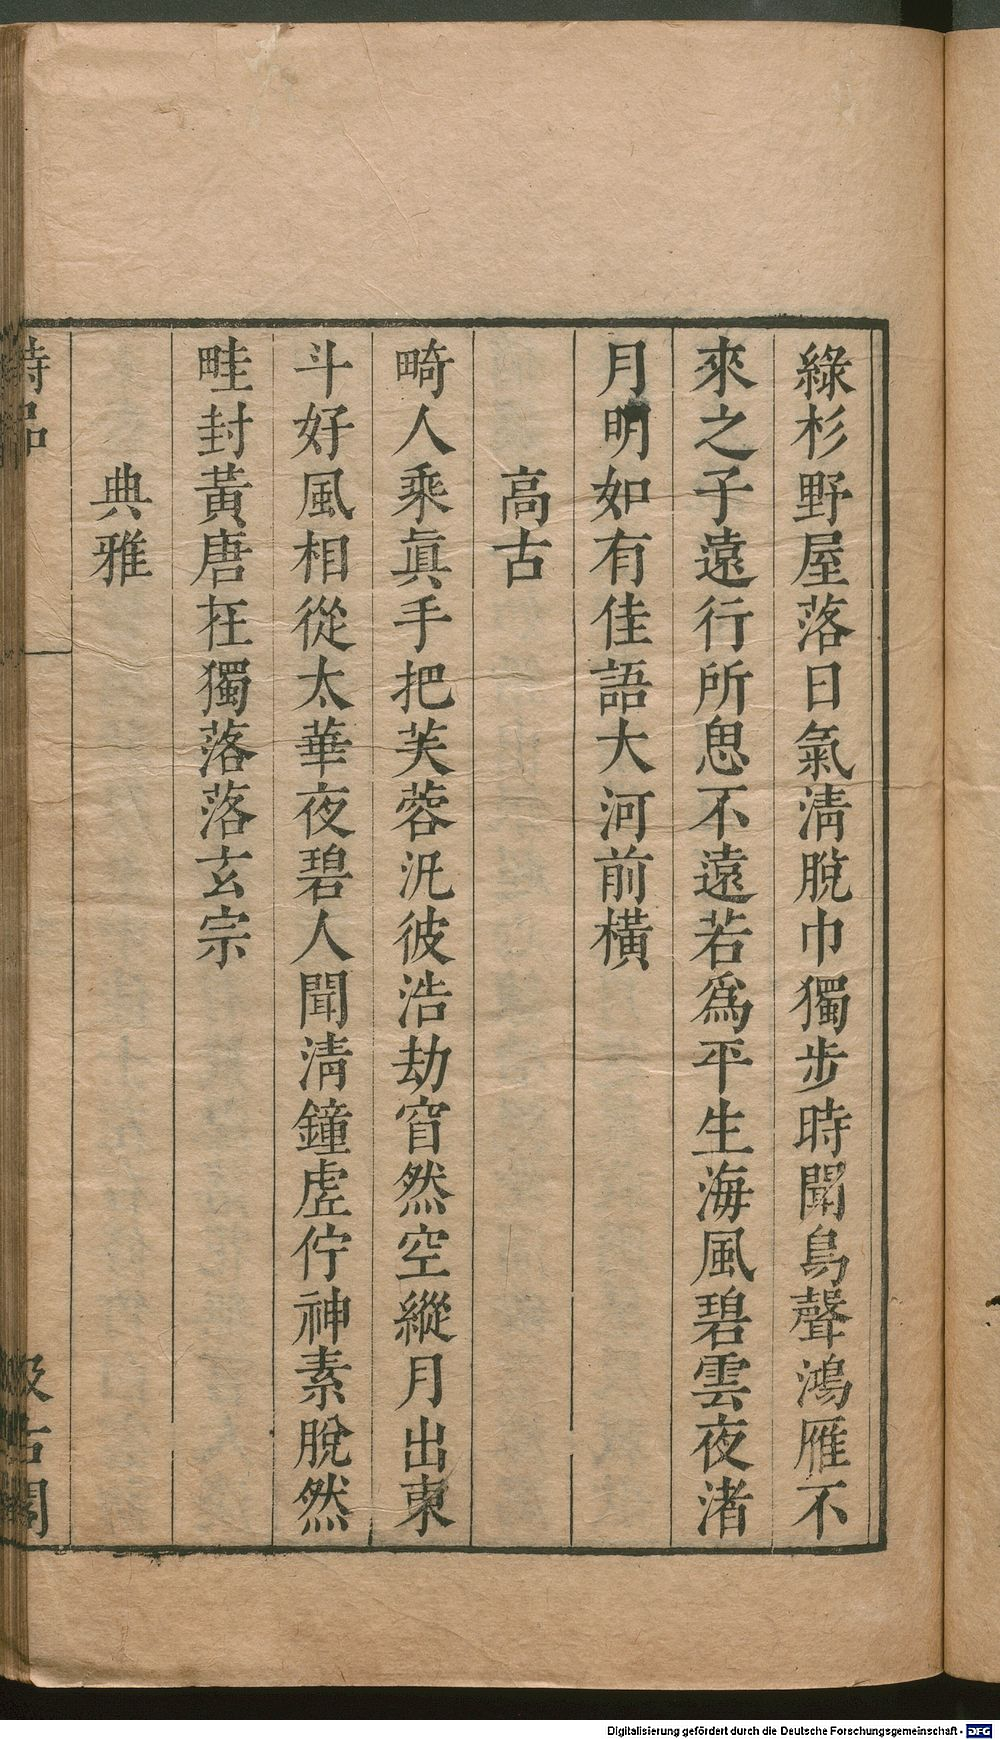 綠杉野屋落日氣淸脫巾獨步時聞鳥聲鴻雁不
來之子遠行所思不遠若爲平生海風碧雲夜渚
月明如有佳語大河前橫
高古
畸人乘眞手把芙蓉汎彼浩劫窅然空縱月出東
斗好風相從太華夜碧人聞淸鐘虗佇神素脫然
畦封黃唐在獨落落玄宗
典雅
詩品
汲古閣
Digitalisierung gefördert durch die Deutsche Forschungsgemeinschaft - DFG